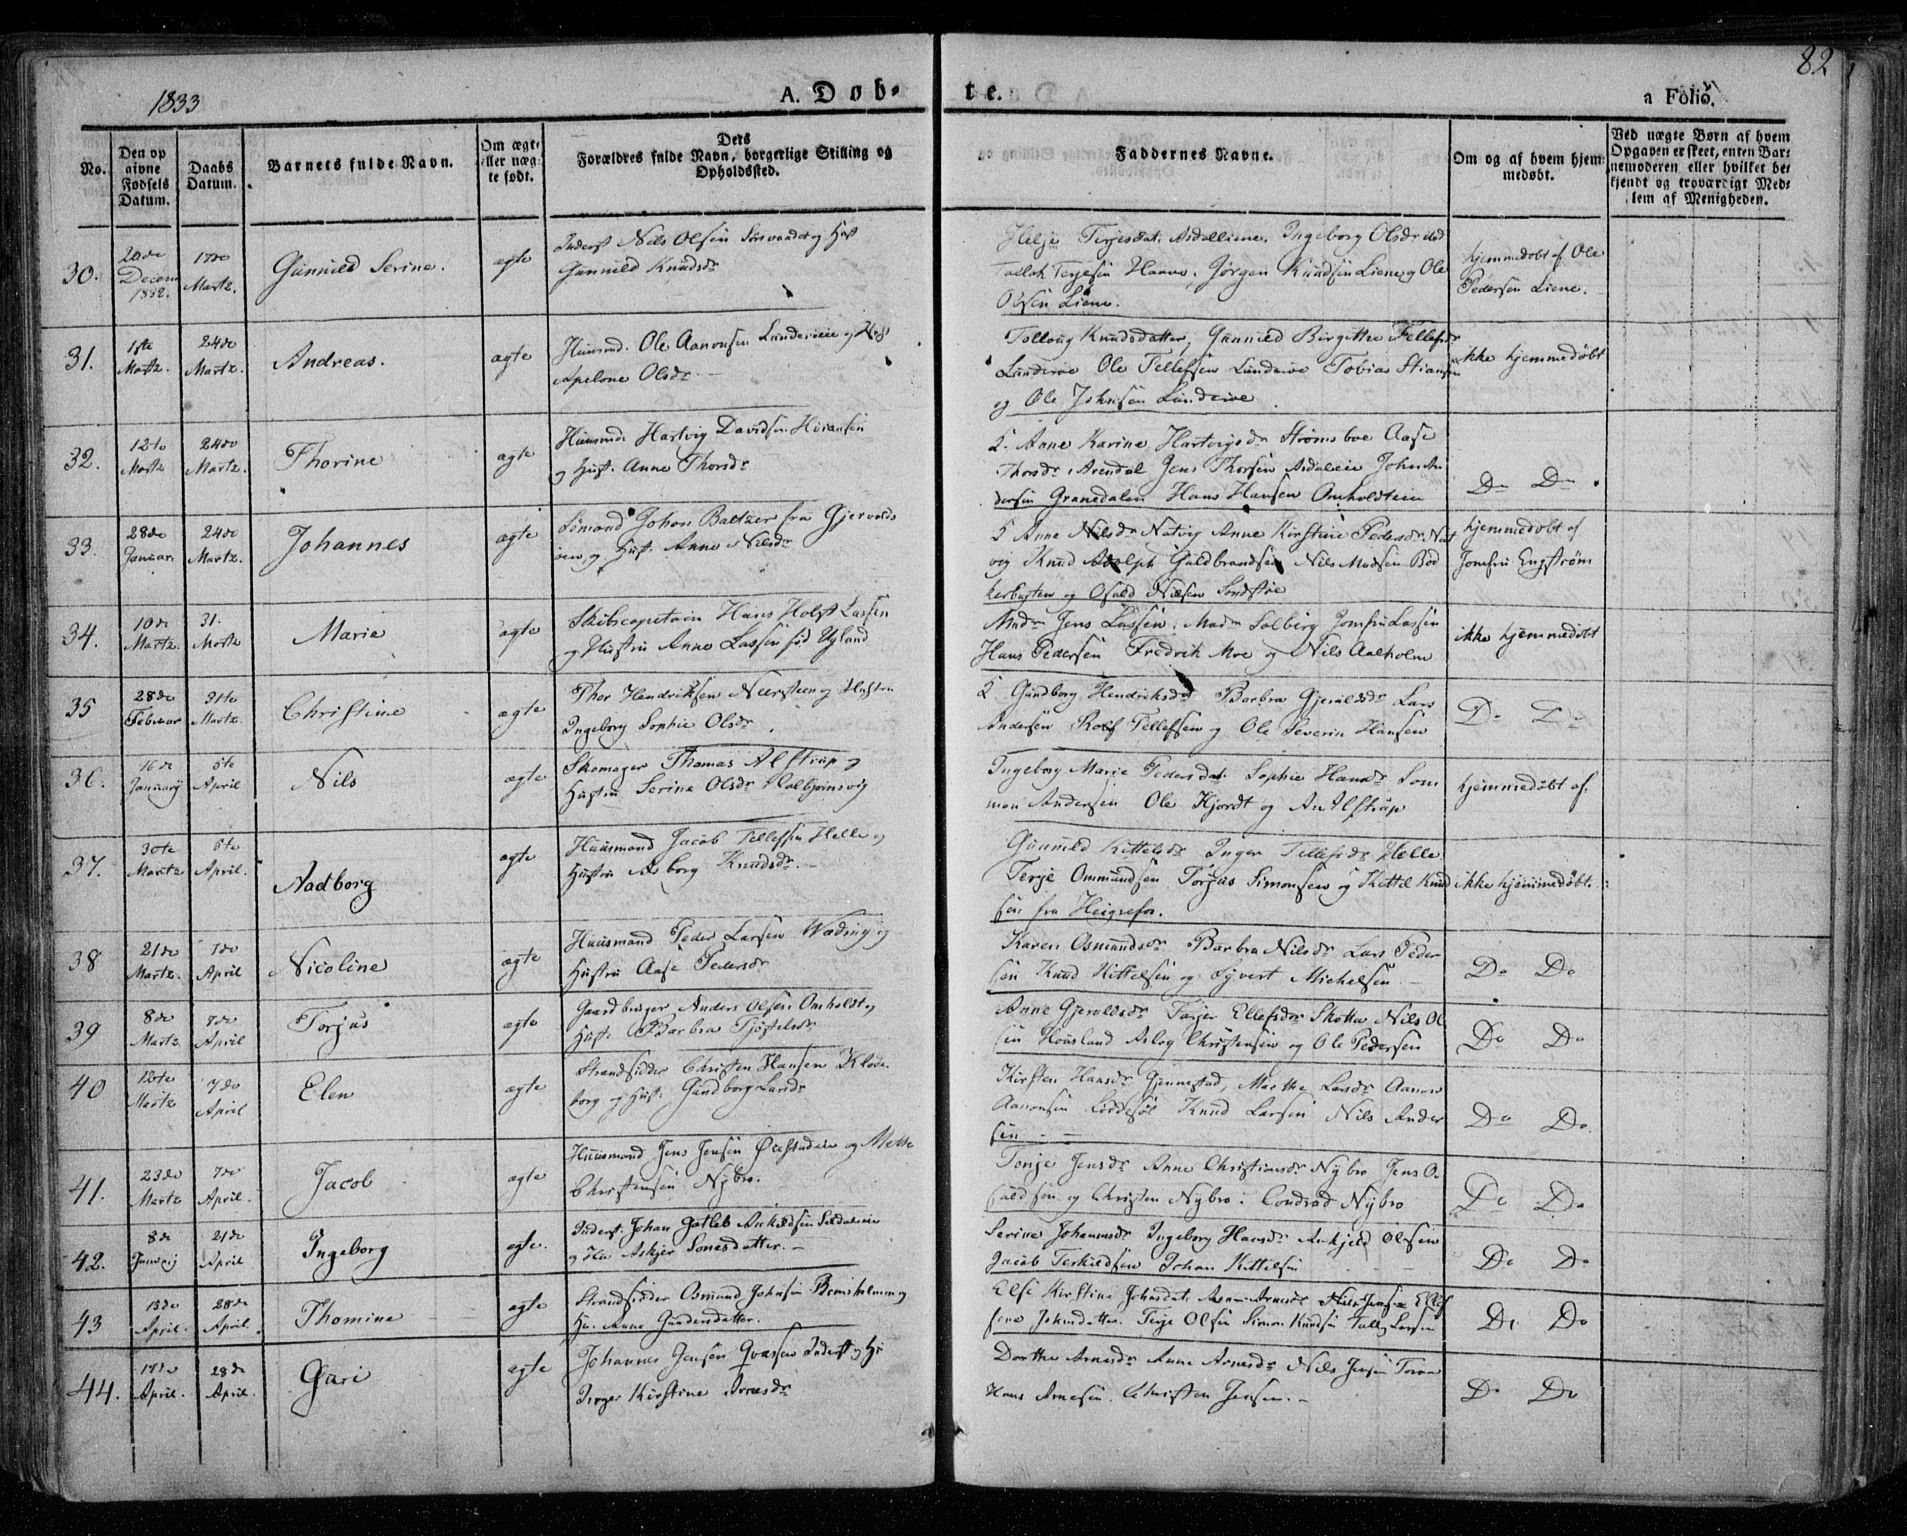 1833
A. Døb-
te.
82
a Folio.
No.
Den op
givne
Fødsels
Datum.
Daabs
Datum.
Barnets fulde Navn.
Om ægte
eller uæg-
te født.
Dets
Forældres fulde Navn, borgerlige Stilling og
Opholdssted.
Faddernes Navne.
Om og af hvem hjem-
medøbt.
Ved uægte Børn af hvem
Opgaven er skeet, enten Bar-
nemoderen eller hvilket be-
kjendt og troværdigt Med-
lem af Menigheden.
30.
20de
Decem
1832.
17de
Martz.
Gunnild Serine.
ægte
Inderst Nils Olsen og Hust
Gunnild Knudsdr
Helje Terjesdat. Ingeborg Olsdr
Terjesen Haave. Jørgen Knudsen Liene og Ole
Olsen Liene.
hjemmedøbt af Ole
Pedersen Liene.
31.
Martz.
24de
Martz.
Andreas.
ægte
Huusmd. Ole Aanonsen Lunderøie og Hust
Apelone Olsdr
Tolloug Knudsdatter, Gunnild Birgitthe Tellefsdr
Lunderøe Ole Tellefsen Lunderøe Tobias Stiansen
og Ole Johnsen Lunderøe
ikke hjemmedøbt
32.
12te
Martz
24de
Martz.
Thorine
ægte
Huusmd. Hartvig Davidsen
og Hust. Anne Thorsdr
5. Anne Karine Hartvigsdr Strømsboe Aase
Thorsdr Arendal Jens Thorsen John An
dersen Granedalen Hans Hansen Omholdteien
Do Do
33.
28de
Januar.
24de
Martz.
Johannes
ægte
Sømand Johan Baltzer fra Gjervolds
øen og Hust. Anne Nilsdr
5 Anne Nilsdr Natvig Anne Kirstine Pedersdr Nat
vig Knud Adolph Guldbrandsen Nils Madsen Bød
kerbugten og Osuld Nielsen Sandstøe
hjemmedøbt af
Jomfru Engstrøm
34.
10de
Martz.
31.
Martz
Marie
ægte
Skibscapitain Hans Holst Lassen
og Hustru Anne Lassen fød Ugland
Madm Jens Lassen, Madm Solberg Jomfru Lassen
Hans Pedersen Fredrik Moe og Nils Aalholm
ikke hjemmedøbt
35
28de
Februar
31te
Martz.
Christine
ægte
Thor Hendriksen Neersteen og Hustru
Ingeborg Sophie Olsdr
5 Gundborg Hendriksdat Barbra Gjeruldsdr Lars
Andersen Rolf Tellefsen og Ole Severin Hansen
Do Do
36.
16de
Januarij
5te
April
Nils
ægte
Skomager Thomas Alstrup og
Hustru Serine Olsdr Kolbjørnsvig
Ingeborg Marie Pedersdat. Sophie Hansdr Sam
mon Andersen Ole Hjordt og An Alstrup
hjemmedøbt af.
37.
30te
Martz
5te
April.
Aadborg
ægte
Huusmand Jacob Tellefsen Helle og
Hustru Asborg Knudsdr.
Gunnild Kittelsdr Inger Tellefsdr Helle
Terje Ommundsen Torjus Simonsen og Kittil Knud
sen fra Heigrefos.
ikke hjemmedøbt.
38
21de
Martz.
7de
April
Nicoline
ægte
Huusmand Peder Larsen og
Hustru Aase Pedersdr
Karen Osmundsdr Barbra Nilsdr Lars Peder
sen Knud Kittelsen og Syvert Michelsen
Do Do
39
8de
Martz.
7de
April
Torjus
ægte
Gaardbruger Anders Olsen Omholdt og
Hust. Barbra Tjøstelsdr
Anne Gjeruldsdr Torjer Ellefsdr Skotta Nils Ol
sen Housland Aslag Christensen og Ole Pedersen
Do Do
40
Martz
7de
April
Elen
ægte
Strandsidder Christen Hansen Klode
borg og Hust. Gundborg Larsdr
Kirsten Hansdr Gjennestad, Marthe Larsdr Aanon
Aanonsen Knud Larsen Nils Ander
sen
Do Do
41.
23de
Martz
7de
April.
Jacob
ægte
Huusmand Jens Jensen og Mette
Christensen Nybro.
Torije Jensdr Anne Christiansdr Nybro Jens O
suldsen og Christen Nybro. Condrad Nybro
Do Do
42.
8de
Januarij
21de
April
Ingeborg
ægte.
Inderst. Johan Gotlieb
og Hu. Askjer Sonesdatter.
Serine Johannesdr Ingeborg Hansdr Ankjeld Olssen
Jacob Terkildsen Johan Kittilsen
Do Do
43
April.
28de
April.
Thomine
ægte
Strandsidder Osmund Johnsen og
Hu. Anne Gundersdatter.
Else Kirstine Johnsdat. Nils Jensen
Johnsdatter. Terje Olsen Simon Knudsen Larsen
Do Do
44.
17de
April.
28de
April.
Guri
ægte
Johannes Jensen Inderst og Hu
Kirstine Arnesdr
Dorthe Arnesdr Anne Arnesdr Nils Jensen
Hans Arnesen. Christen Jensen.
Do Do